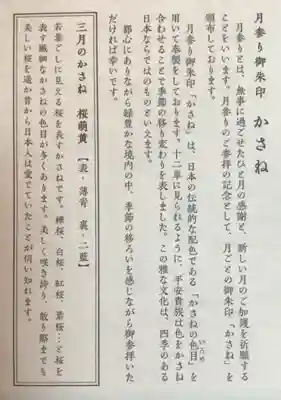 月参り御朱印 かさね
月参りとは、無事に過ごせたひと月の感謝と、新しい月のご加護を祈願する
ことをいいます。月参りのご参拝の記念として、月ごとの御朱印「かさね」を
頒布しております。
月参り御朱印「かさね」は、日本の伝統的な配色である「かさねの色目」を
いろめ
用いて奉製をしております。十二単に見られるように、平安貴族は色をかさね
合わせることで季節の移り変わりを表しました。この雅な文化は、四季のある
日本ならではのものといえます。
都心にありながら緑豊かな境内の中、季節の移ろいを感じながら御参拝いた
だければ幸いです。
三月のかさね 桜萌黄 【表・薄青 裏・二藍】
若葉ごしに見える桜を表すかさねです。樺桜、白桜、紅桜、葉桜…と桜を
表す繊細なかさねの色目が多くあります。美しく咲き誇り、散り際までも
美しい桜を遥か昔から日本人は愛でていたことが伺い知れます。